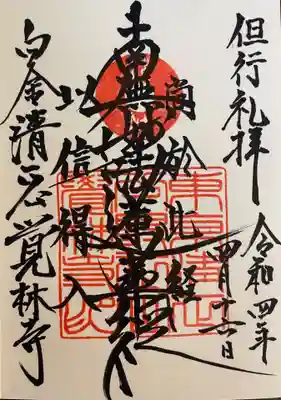 但行礼拝
令和四年
尚於此経
南無妙法蓮華経
以信得入
白金清正公覚林寺